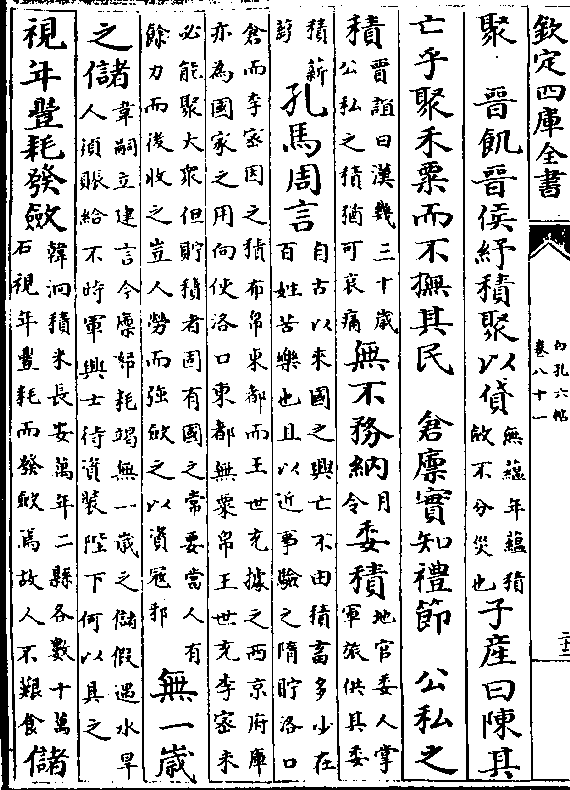 欽定四庫全書
白孔六帖
卷八十一
聚 晉飢晉侯紓積聚以貸
無藴年藴積
不分災也
子産曰陳其
亡乎聚禾粟而不撫其民 倉廩實知禮節 公私之
積
賈誼曰漢幾三十歲
公私之積猶可哀痛
無不務納
月
令
委積
地官委人掌
軍旅供其委
積薪
蒭
孔馬周言
自古以來國之興亡不由積畜多少在
百姓苦樂也且以近事驗之隋貯洛口
倉而李宻因之積布帛東都而王世充據之西京府庫
亦為國家之用向使洛口東都無粟帛王世充李宻未
必能聚大衆但貯積者固有國之常要當人有
餘力而後收之豈人勞而強歛之以資宼邪
無一歳
之儲
韋嗣立建言今廪帑耗竭無一歲之儲假遇水旱
人須賑給不時軍興士待資装陛下何以具之
視年豐耗發歛
韓洄積米長安萬年二縣各數十萬
石視年豐耗而發歛焉故人不艱食
儲